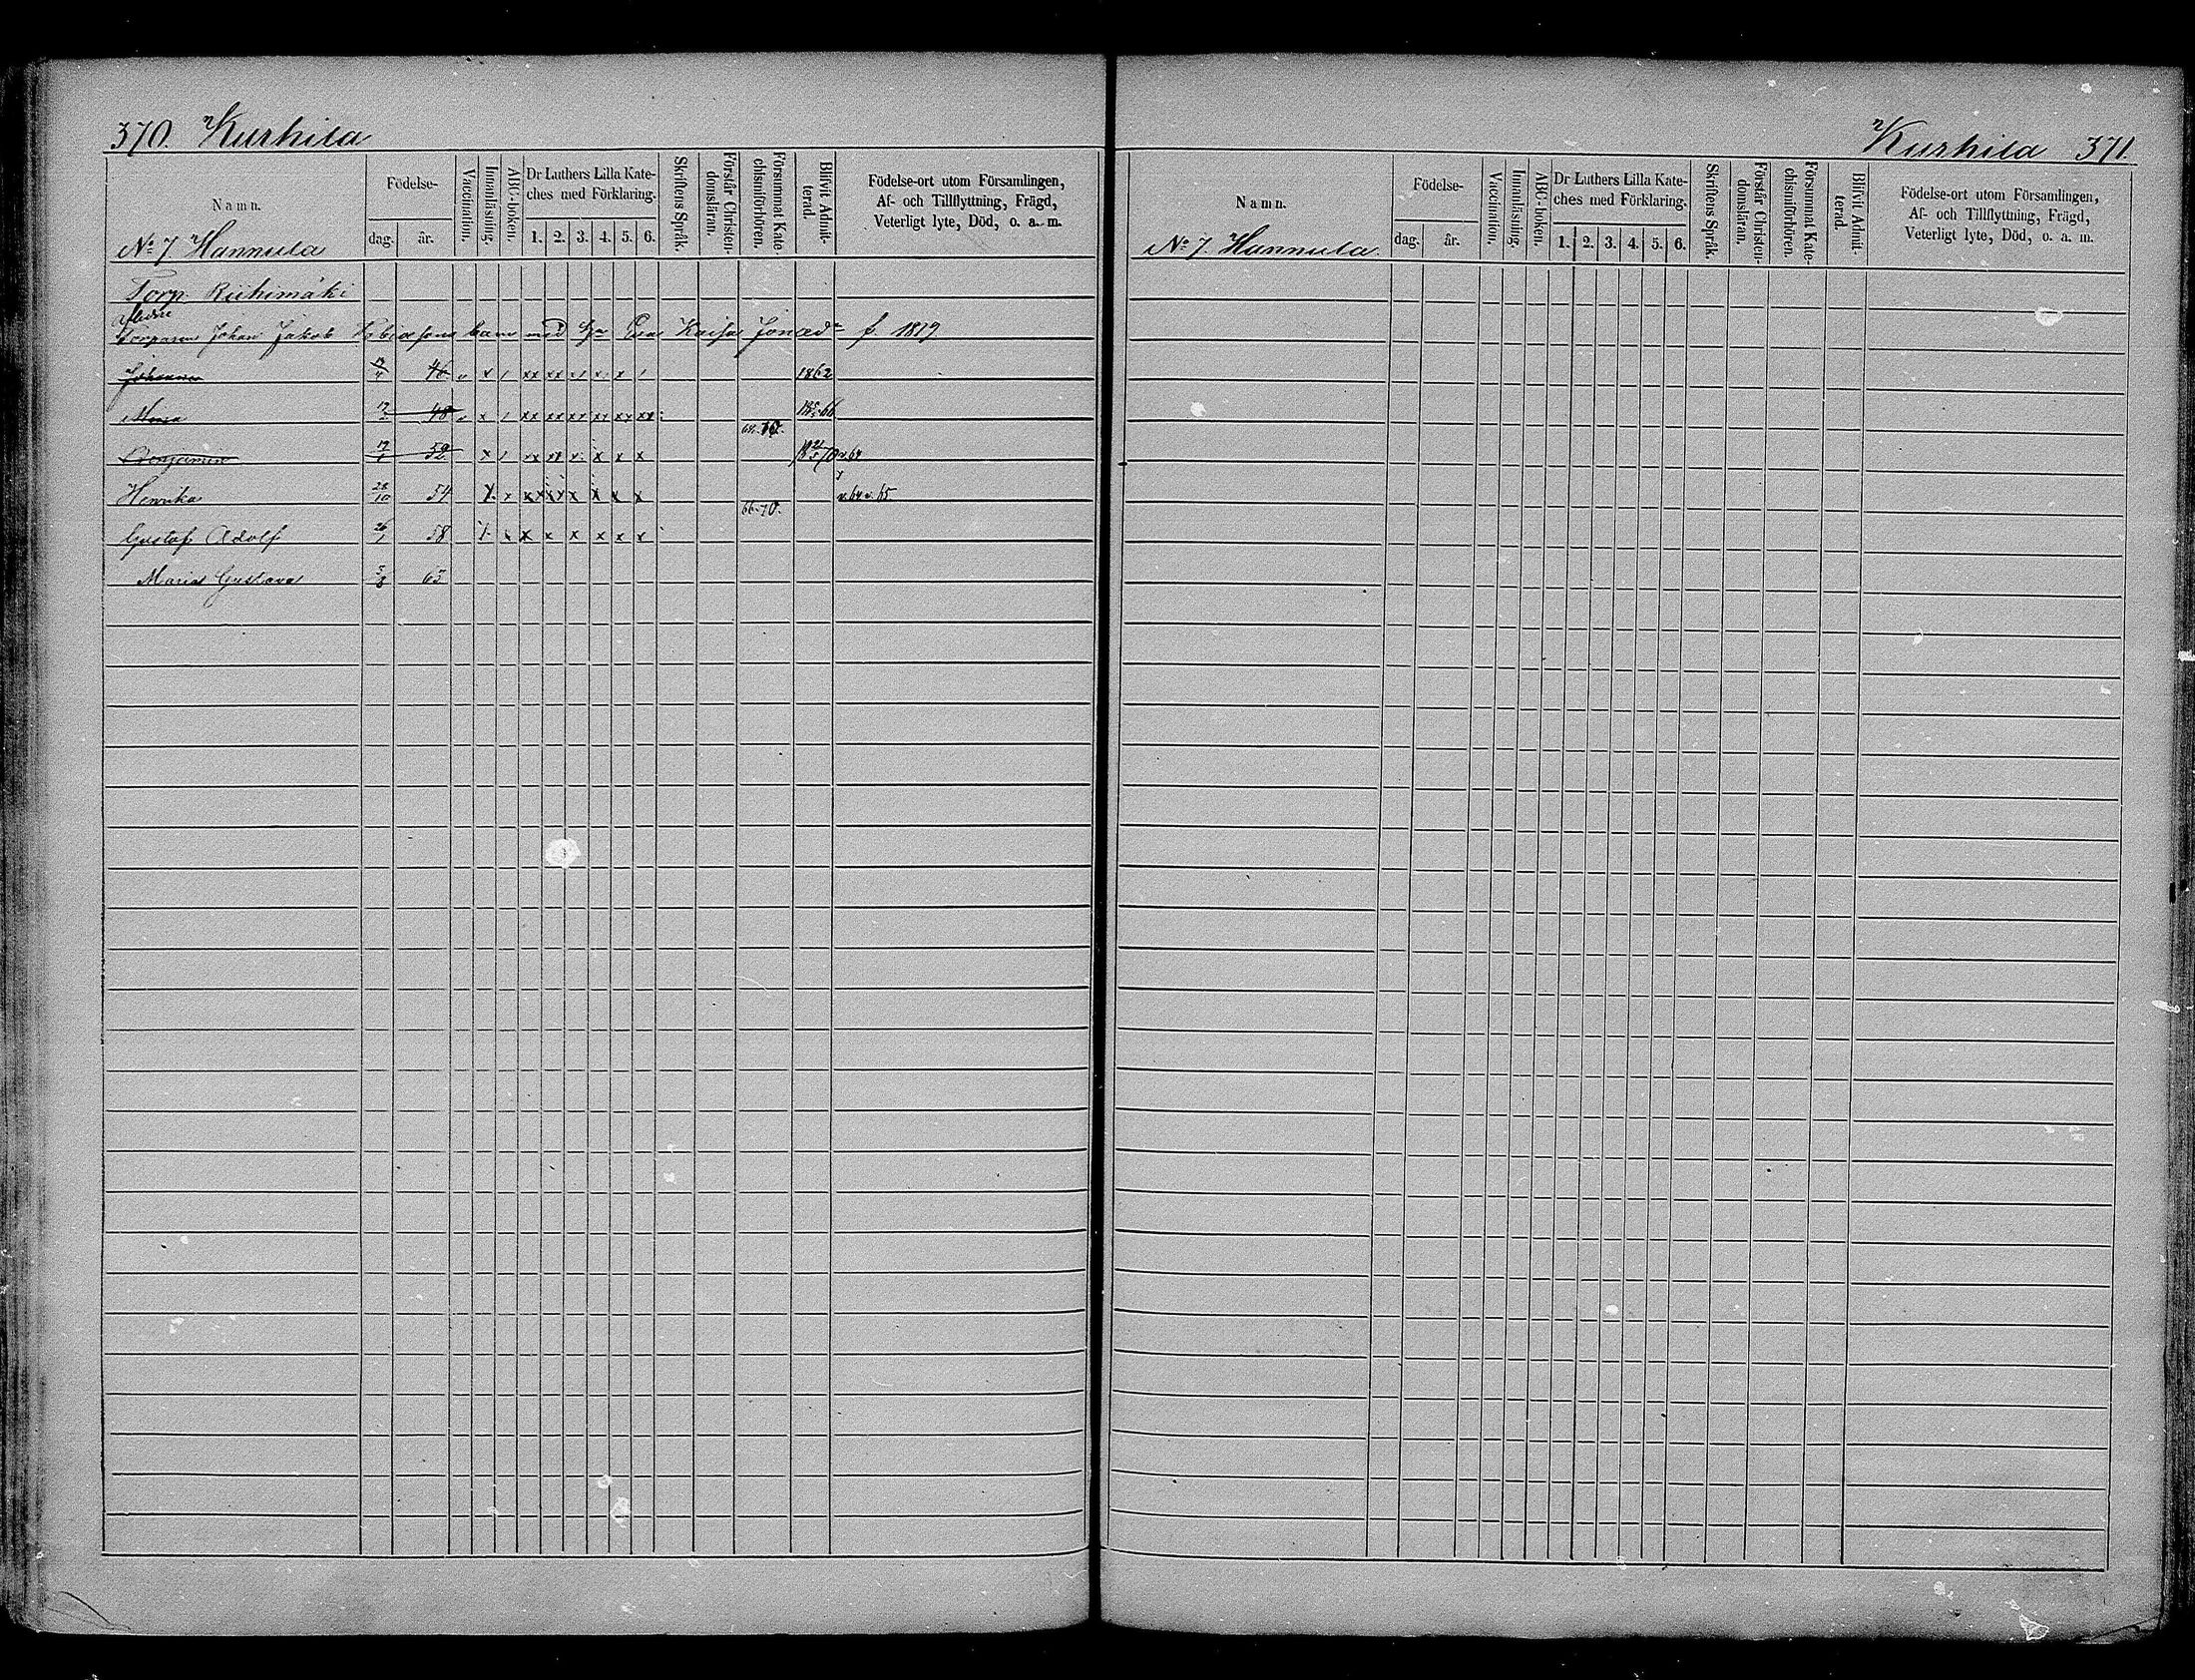 370. Kurhila
Namn.
Födelse-
dag. år.
Vaccination.
Innanläsning.
ABC-boken.
Dr Luthers Lilla Kate-
ches med Förklaring.
1. 2. 3. 4. 5. 6.
Skriftens Språk.
Förstår Christen-
domsläran.
Försummat Kate-
chismiförhören.
Blifvit Admit-
terad.
Födelse-ort utom Församlingen,
Af- och Tillflyttning, Frägd,
Veterligt lyte, Död, o. a. m.
No 7. Hannula
Torp. Riihimäki
Torparen Johan Jakob Tobiassons barn med Eva Kaisa Jonaedr f. 1819
Johanna 46 x / xx xx x x / 1862
12/2 48 x / xx xx xx xx xx xx 66
64. 70.
Benjamin 52 x / xx xx x x x x 70 v. 64
Henrika 28/10 54 x x x x x x v. 64 v. 65
66-70.
Gustaf Adolf 26/1 58 x x x x x x x
Maria Gustava 5/8 65
Kurhila 371.
Namn.
Födelse-
dag. år.
Vaccination.
Innanläsning.
ABC-boken.
Dr Luthers Lilla Kate-
ches med Förklaring.
1. 2. 3. 4. 5. 6.
Skriftens Språk.
Förstår Christen-
domsläran.
Försummat Kate-
chismiförhören.
Blifvit Admit-
terad.
Födelse-ort utom Församlingen,
Af- och Tillflyttning, Frägd,
Veterligt lyte, Död, o. a. m.
No 7. Hannula.